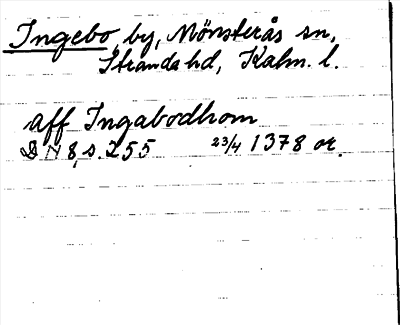 Ingebo by, Mönsterås sn,
Stranda hd, Kalm. l.
aff Ingabodhom
DN 8, s. 255 23/4 1378 or.